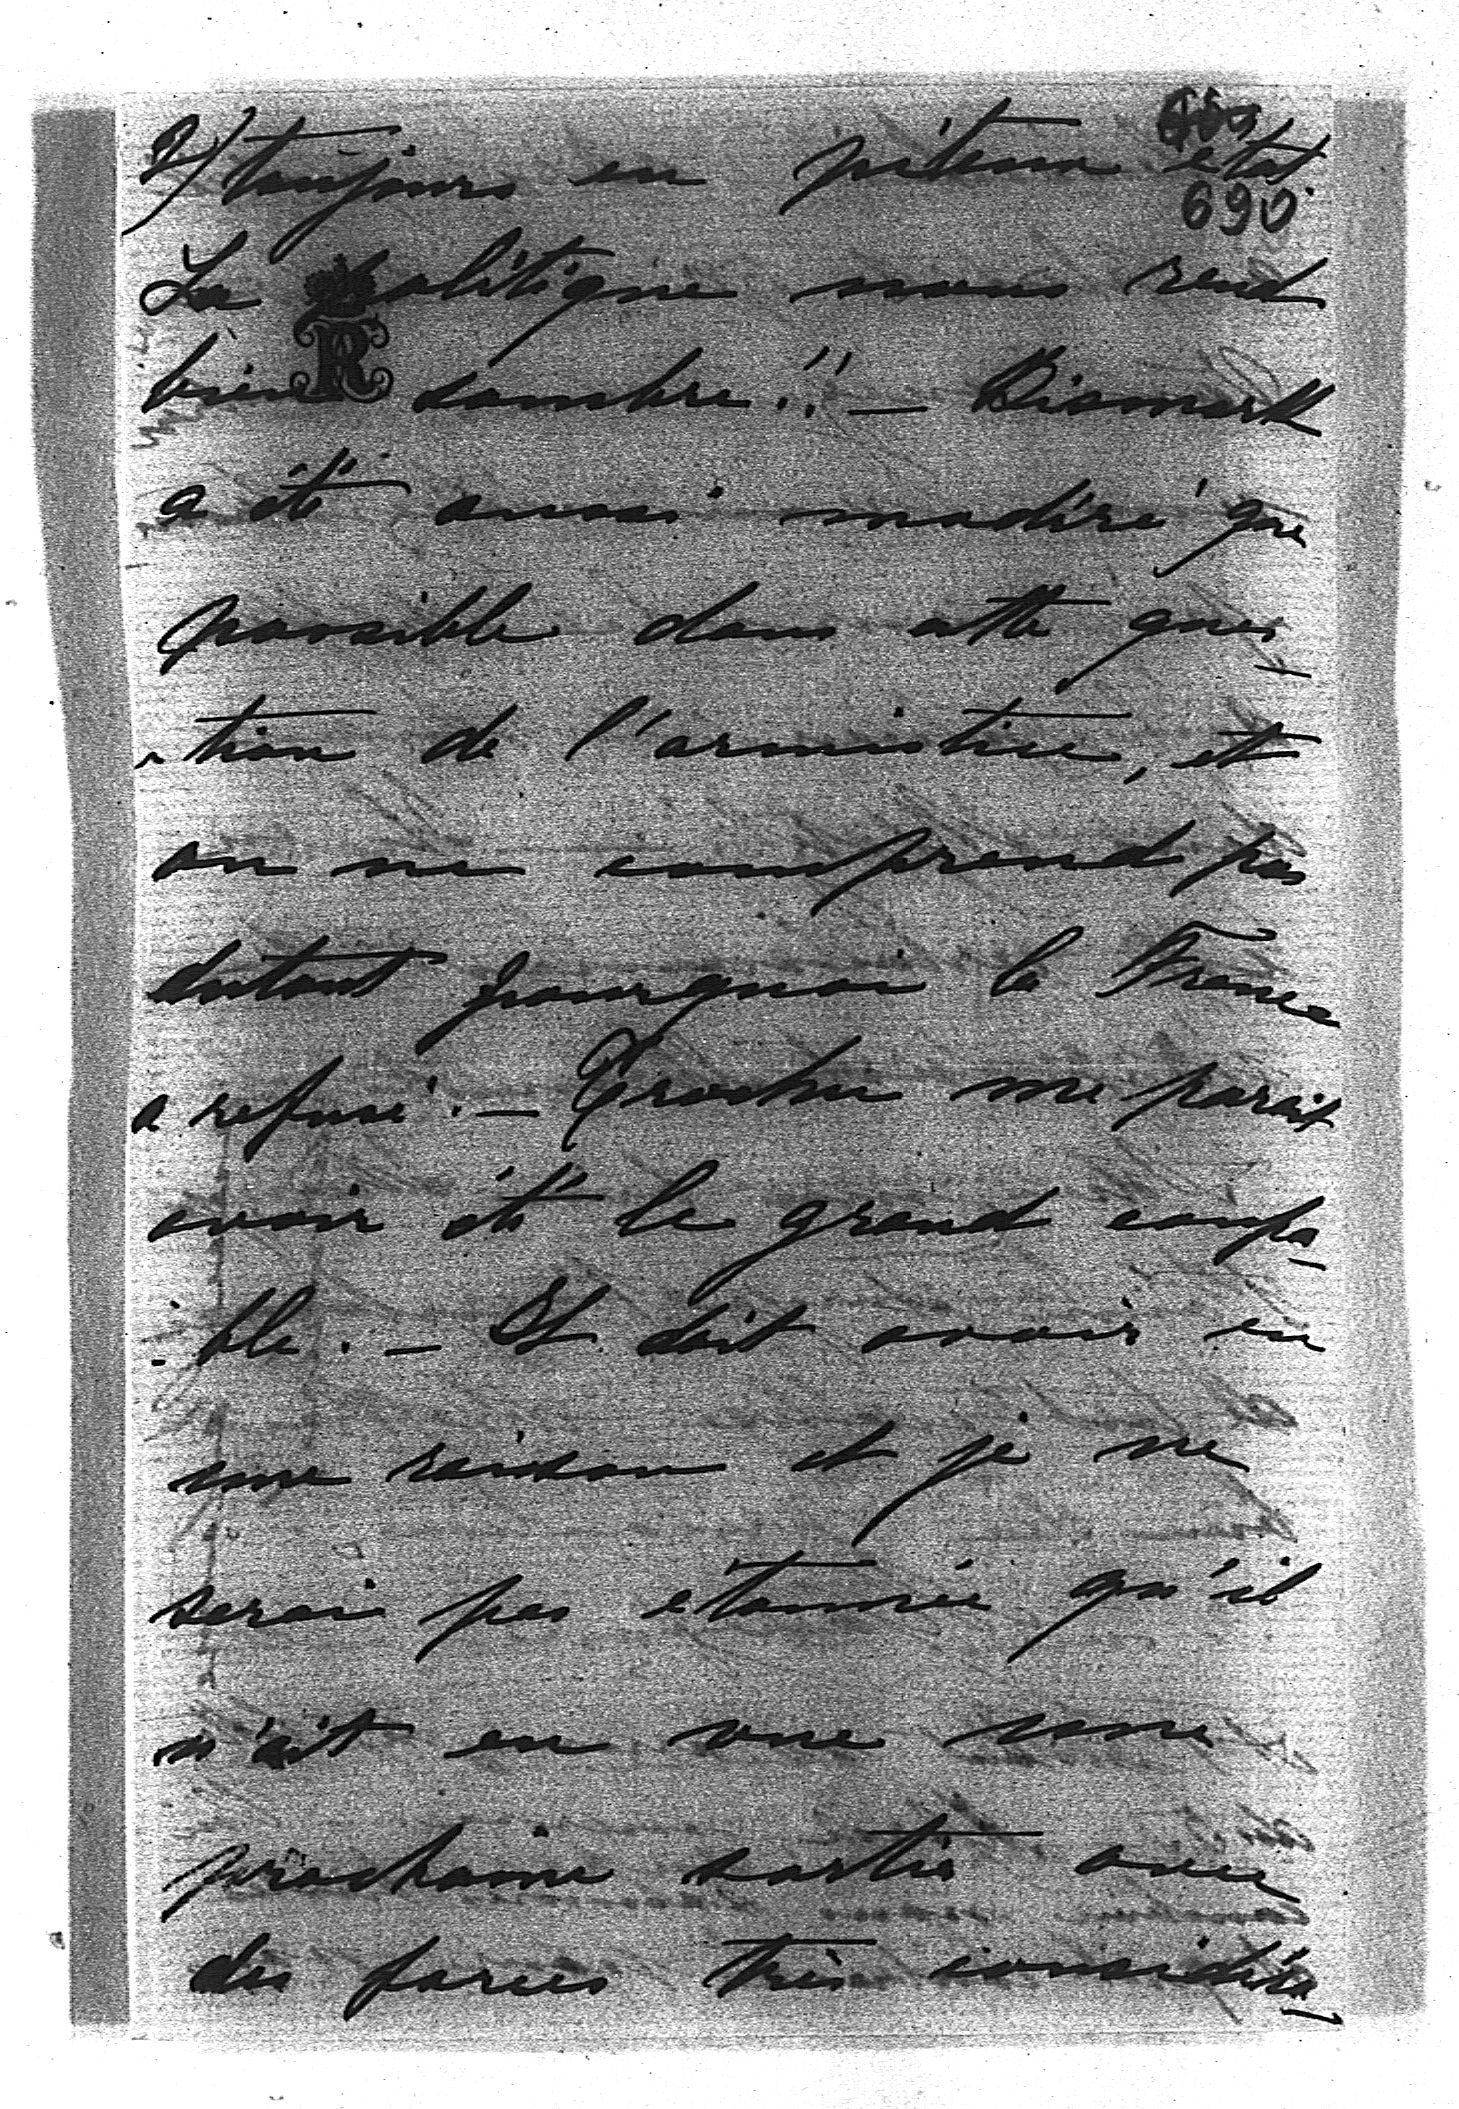 2) toujours en piteux etat.
690
La politique nous rend
bien sombre!! — Bismark
a été aussi modéré que
possible dans cette ques-
-tion de l'armistice, et
on ne comprend pas
autant pourquoi la France
a refusé. — Trochu me parait
avoir été le grand coupa-
-ble. — Il doit avoir eu
une raison et je ne
serai pas etonnée qu'il
n'ait en vue une
prochaine sortie avec
des forces très considéra-